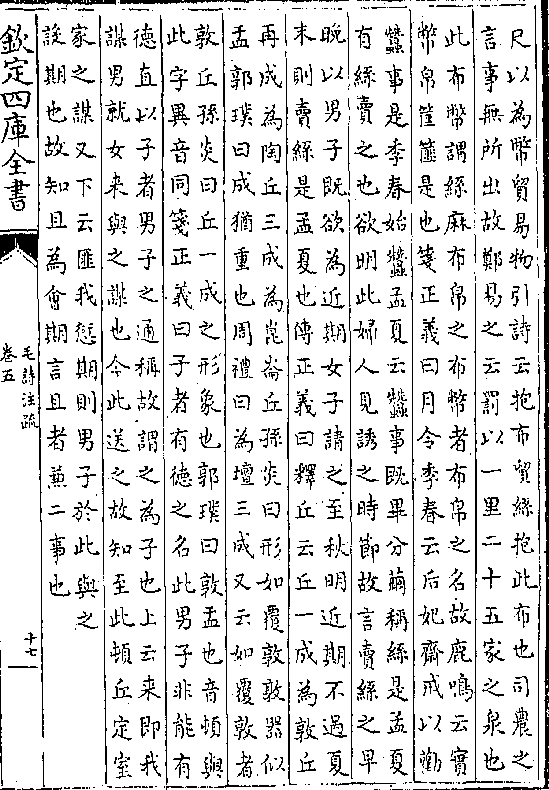 尺以為幣貿易物引詩云抱布貿絲抱此布也司農之
言事無所出故鄭易之云罰以一里二十五家之泉也
此布幣謂絲麻布帛之布幣者布帛之名故鹿鳴云實
幣帛筐篚是也箋正義曰月令季春云后妃齋戒以勸
蠶事是季春始蠶孟夏云蠶事既畢分繭稱絲是孟夏
有絲賣之也欲明此婦人見誘之時節故言賣絲之早
晚以男子既欲為近期女子請之至秋明近期不過夏
末則賣絲是孟夏也傳正義曰釋丘云丘一成為敦丘
再成為陶丘三成為崑崙丘孫炎曰形如覆敦敦器似
孟郭璞曰成猶重也周禮曰為壇三成又云如覆敦者
敦丘孫炎曰丘一成之形象也郭璞曰敦孟也音頓與
此字異音同箋正義曰子者有德之名此男子非能有
德直以子者男子之通稱故謂之為子也上云来即我
謀男就女来與之謀也今此送之故知至此頓丘定室
家之謀又下云匪我愆期則男子於此與之
設期也故知且為會期言且者兼二事也
欽定四庫全書
毛詩注疏
卷五
十七